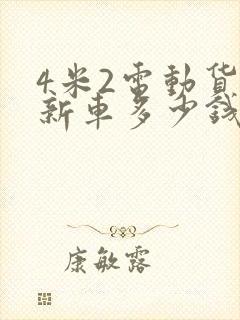 4米2電動貨
新車多少錢
康敏露